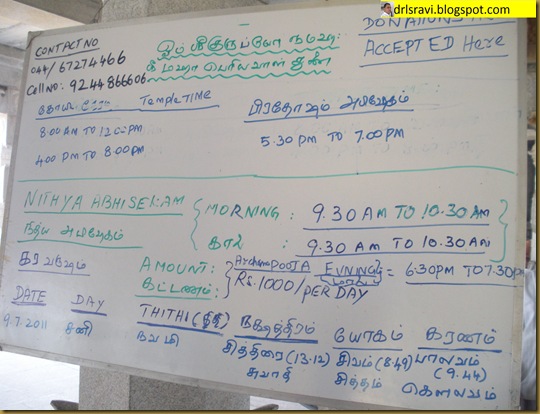 drlsravi.blogspot.com
CONTACT NO
044/67274466
Cell No: 9244866606
ஓம் ஸ்ரீ குருப்யோ நமஹ:
ஸ்ரீ மஹா பெரியவாள் துணை
ACCEPTED Here
TEMPLE TIME
8.00 AM TO 12.00 PM
4.00 PM TO 8.00 PM
பிரதோஷம் அபிஷேகம்
5.30 PM TO 7.00 PM
NITHYA ABHISEKAM
நித்ய அபிஷேகம்
MORNING : 9.30 AM TO 10.30 AM
காலை : 9.30 AM TO 10.30 AM
கர வருஷம்
AMOUNT:
கட்டணம்:
Archana POOJA EVNING = 6.30PM TO 7.30PM
Rs. 1000/ PER DAY
DATE DAY THITHI (திதி) நக்ஷத்திரம் யோகம் கரணம்
9.7.2011 சனி நவமி சித்திரை (13.12) சிவம் (8.49) பாலவம் (9.44)
சுவாதி சித்தம் கௌலவம்